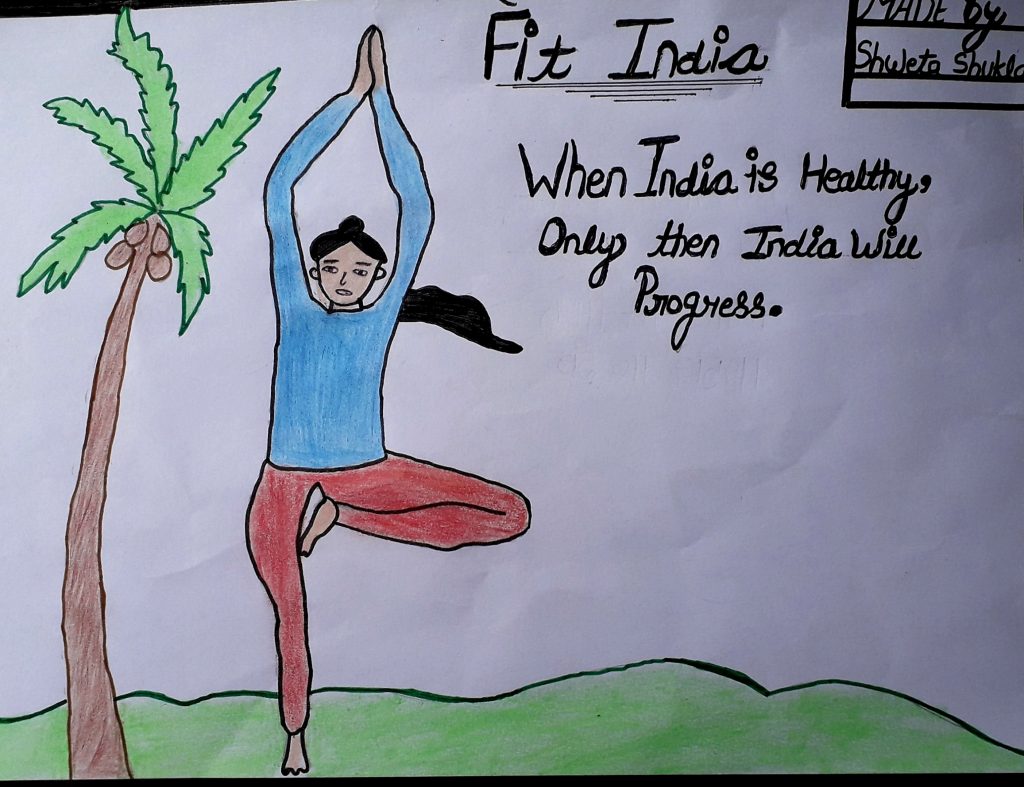 Fit India
MADE by
Shweta Shukla
When India is Healthy,
Only then India Will
Progress.